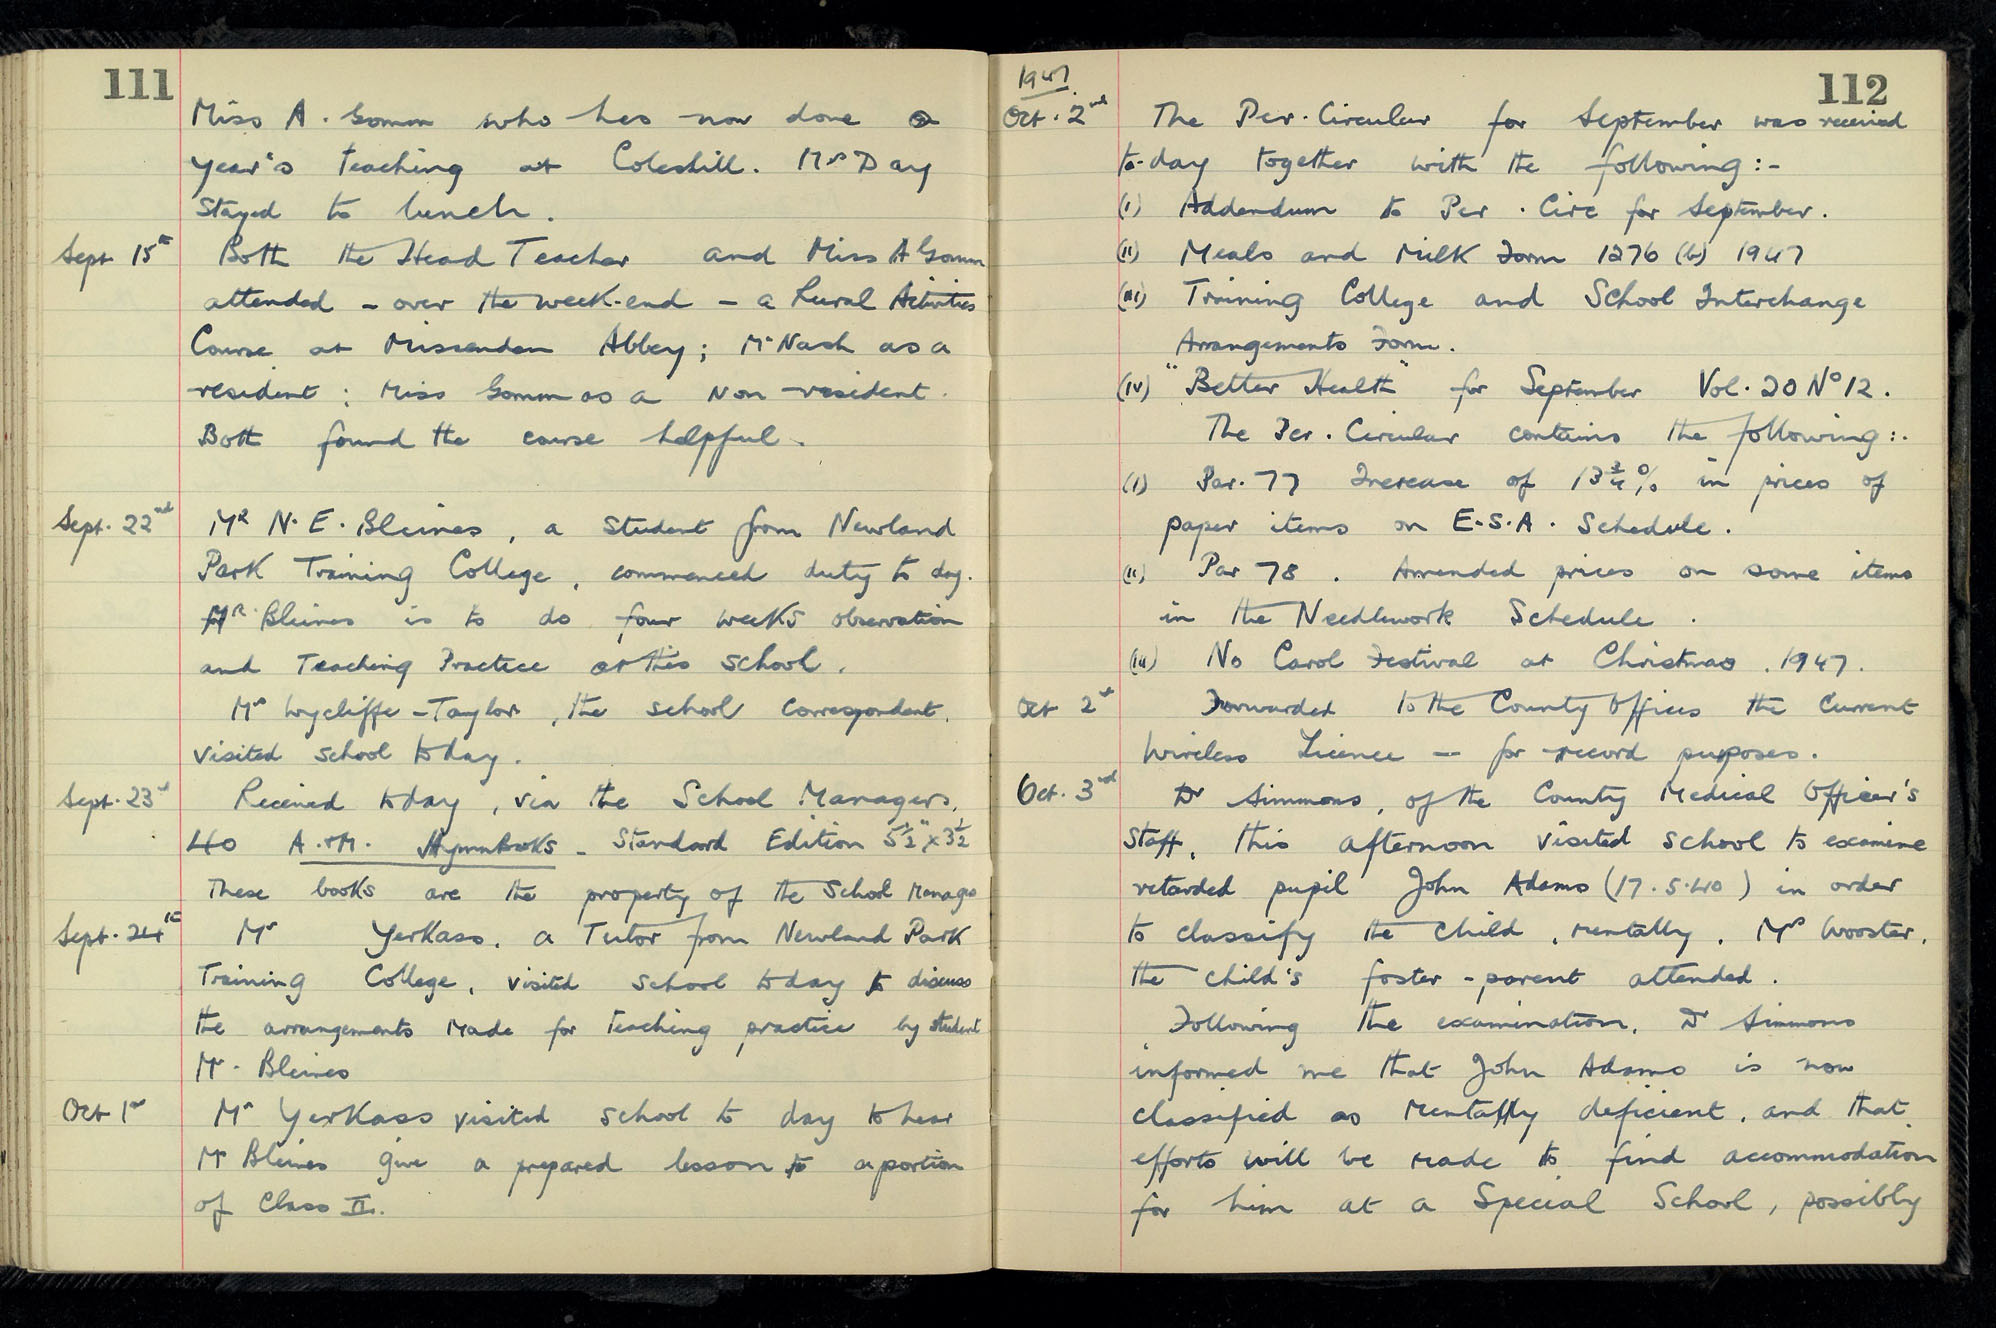 111
Miss A. Gomm who has now done a
year's teaching at Coleshill. Mrs Day
stayed to lunch.
Sept 15th Both the Head Teacher and Miss A Gomm
attended - over the week-end - a Rural Activities
Course at Missenden Abbey; Mr Nash as a
resident; Miss Gomm as a Non-resident.
Both found the course helpful.
Sept. 22nd MR N. E. Bleines, a student from Newland
Park Training College, commenced duty to day.
MR. Bleines is to do four weeks observation
and Teaching Practice at this school.
Mr Wycliffe-Taylor, the school correspondent,
visited school today.
Sept. 23rd Received today, via the School Managers,
40 A.&M. Hymnbooks - Standard Edition 5½" x 3½
These books are the property of the School Managers
Sept. 24th Mr Yerkass, a Tutor from Newland Park
Training College, visited school today to discuss
the arrangements made for teaching practice by student
Mr. Bleines
Oct 1st Mr Yerkass visited school to day to hear
Mr Bleines give a prepared lesson to a portion
of Class II.
1947
112
Oct. 2nd The Per. Circular for September was received
to-day together with the following:-
(i) Addendum to Per. Circ for September.
(ii) Meals and Milk Form 1276 (b) 1947
(iii) Training College and School Interchange
Arrangements Form.
(iv) "Better Health" for September Vol. 20 No 12.
The Per. Circular contains the following:.
(i) Par. 77 Increase of 13¾% in prices of
paper items on E.S.A. Schedule.
(ii) Par 78. Amended prices on some items
in the Needlework Schedule.
(iii) No Carol Festival at Christmas. 1947.
Oct 2nd Forwarded to the County Offices the current
Wireless Licence -- for record purposes.
Oct. 3rd Dr Simmons, of the County Medical Officer's
Staff, this afternoon visited school to examine
retarded pupil John Adams (17.5.40) in order
to classify the child, mentally. Mrs Wooster,
the child's foster-parent attended.
Following the examination, Dr Simmons
informed me that John Adams is now
classified as mentally deficient, and that
efforts will be made to find accommodation
for him at a Special School, possibly